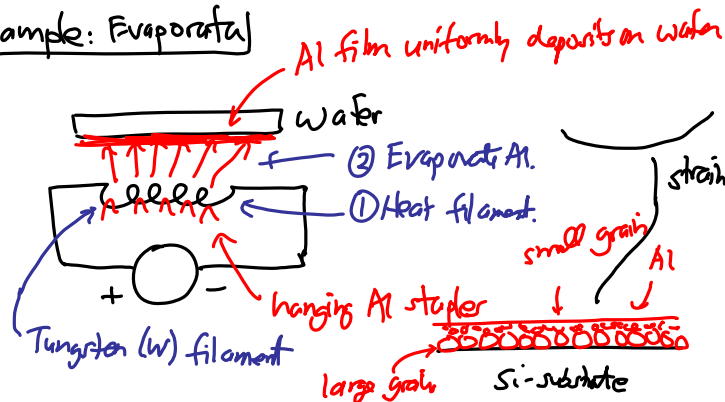 ample: Evaporata
Al film uniformly deposits on wafer
wafer
② Evaporate Al.
① Heat filament.
strain
small grain
Al
+ −
hanging Al staples
Tungsten (W) filament
large grain
Si-substrate